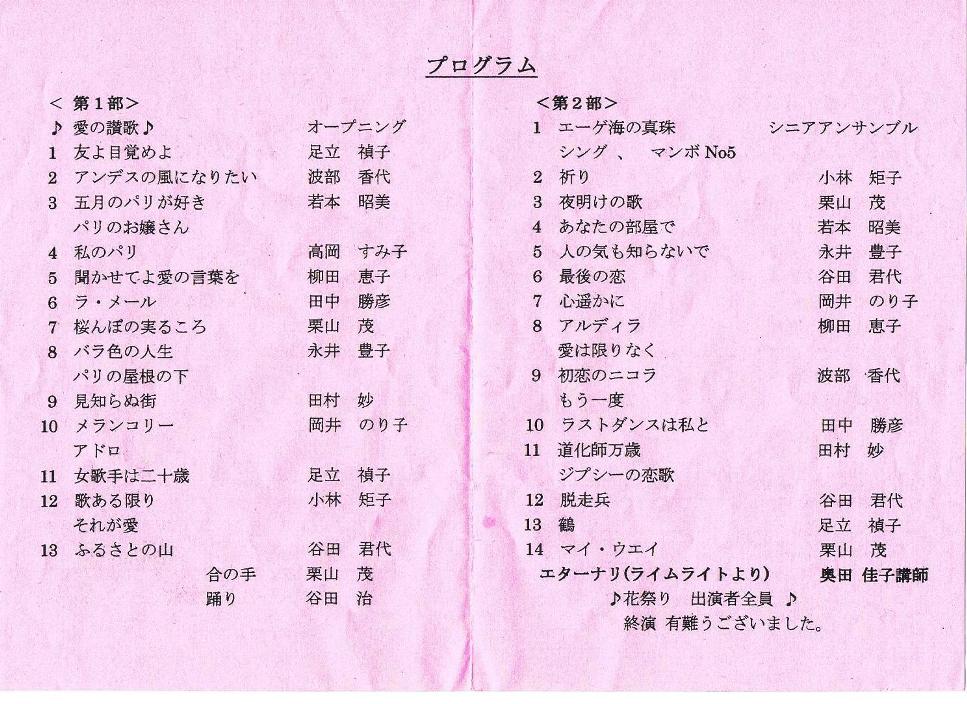 プログラム
＜ 第１部＞
♪ 愛の讃歌♪ オープニング
1 友よ目覚めよ 足立 禎子
2 アンデスの風になりたい 波部 香代
3 五月のパリが好き 若本 昭美
パリのお嬢さん
4 私のパリ 高岡 すみ子
5 聞かせてよ愛の言葉を 柳田 恵子
6 ラ・メール 田中 勝彦
7 桜んぼの実るころ 栗山 茂
8 バラ色の人生 永井 豊子
パリの屋根の下
9 見知らぬ街 田村 妙
10 メランコリー 岡井 のり子
アドロ
11 女歌手は二十歳 足立 禎子
12 歌ある限り 小林 矩子
それが愛
13 ふるさとの山 谷田 君代
合の手 栗山 茂
踊り 谷田 治
＜第２部＞
1 エーゲ海の真珠 シニアアンサンブル
シング 、 マンボ No5
2 祈り 小林 矩子
3 夜明けの歌 栗山 茂
4 あなたの部屋で 若本 昭美
5 人の気も知らないで 永井 豊子
6 最後の恋 谷田 君代
7 心遥かに 岡井 のり子
8 アルディラ 柳田 恵子
愛は限りなく
9 初恋のニコラ 波部 香代
もう一度
10 ラストダンスは私と 田中 勝彦
11 道化師万歳 田村 妙
ジプシーの恋歌
12 脱走兵 谷田 君代
13 鶴 足立 禎子
14 マイ・ウエイ 栗山 茂
エターナリ(ライムライトより) 奥田 佳子講師
♪花祭り 出演者全員 ♪
終演 有難うございました。